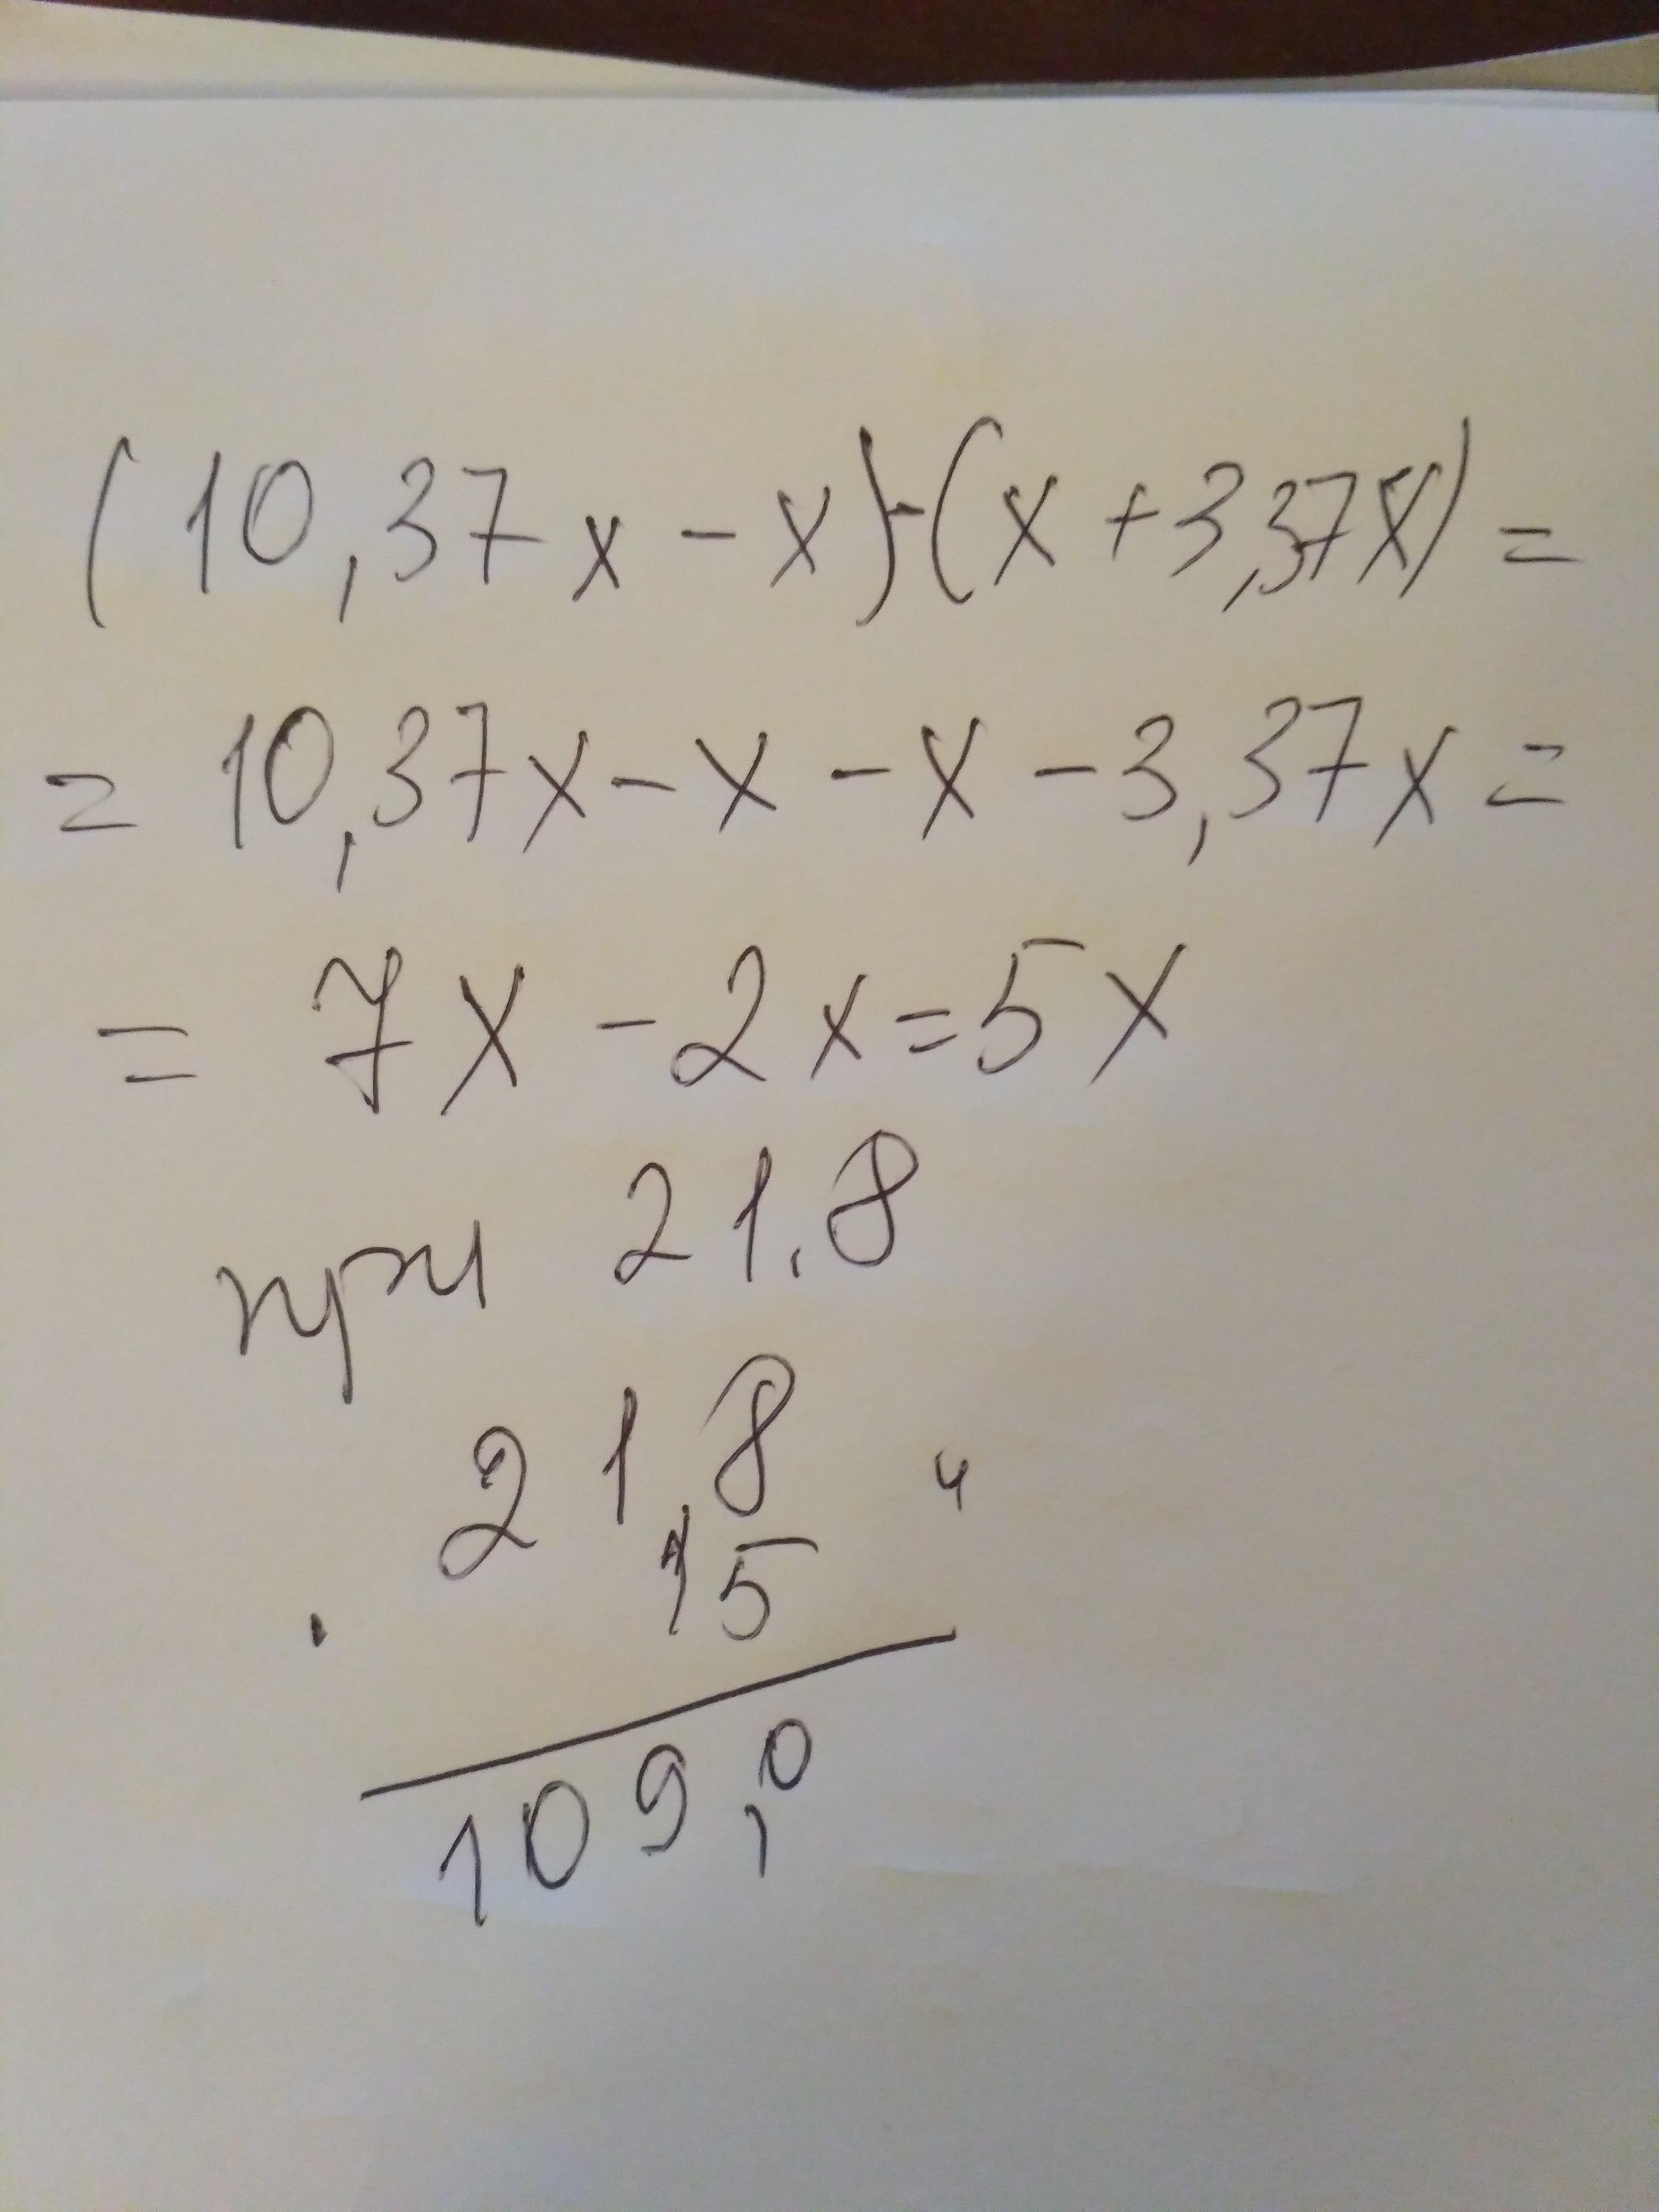 (10,37x - x) - (x + 3,37x) =
= 10,37x - x - x - 3,37x =
= 7x - 2x = 5x
при 21.8
21,8 4
. 15
109,0